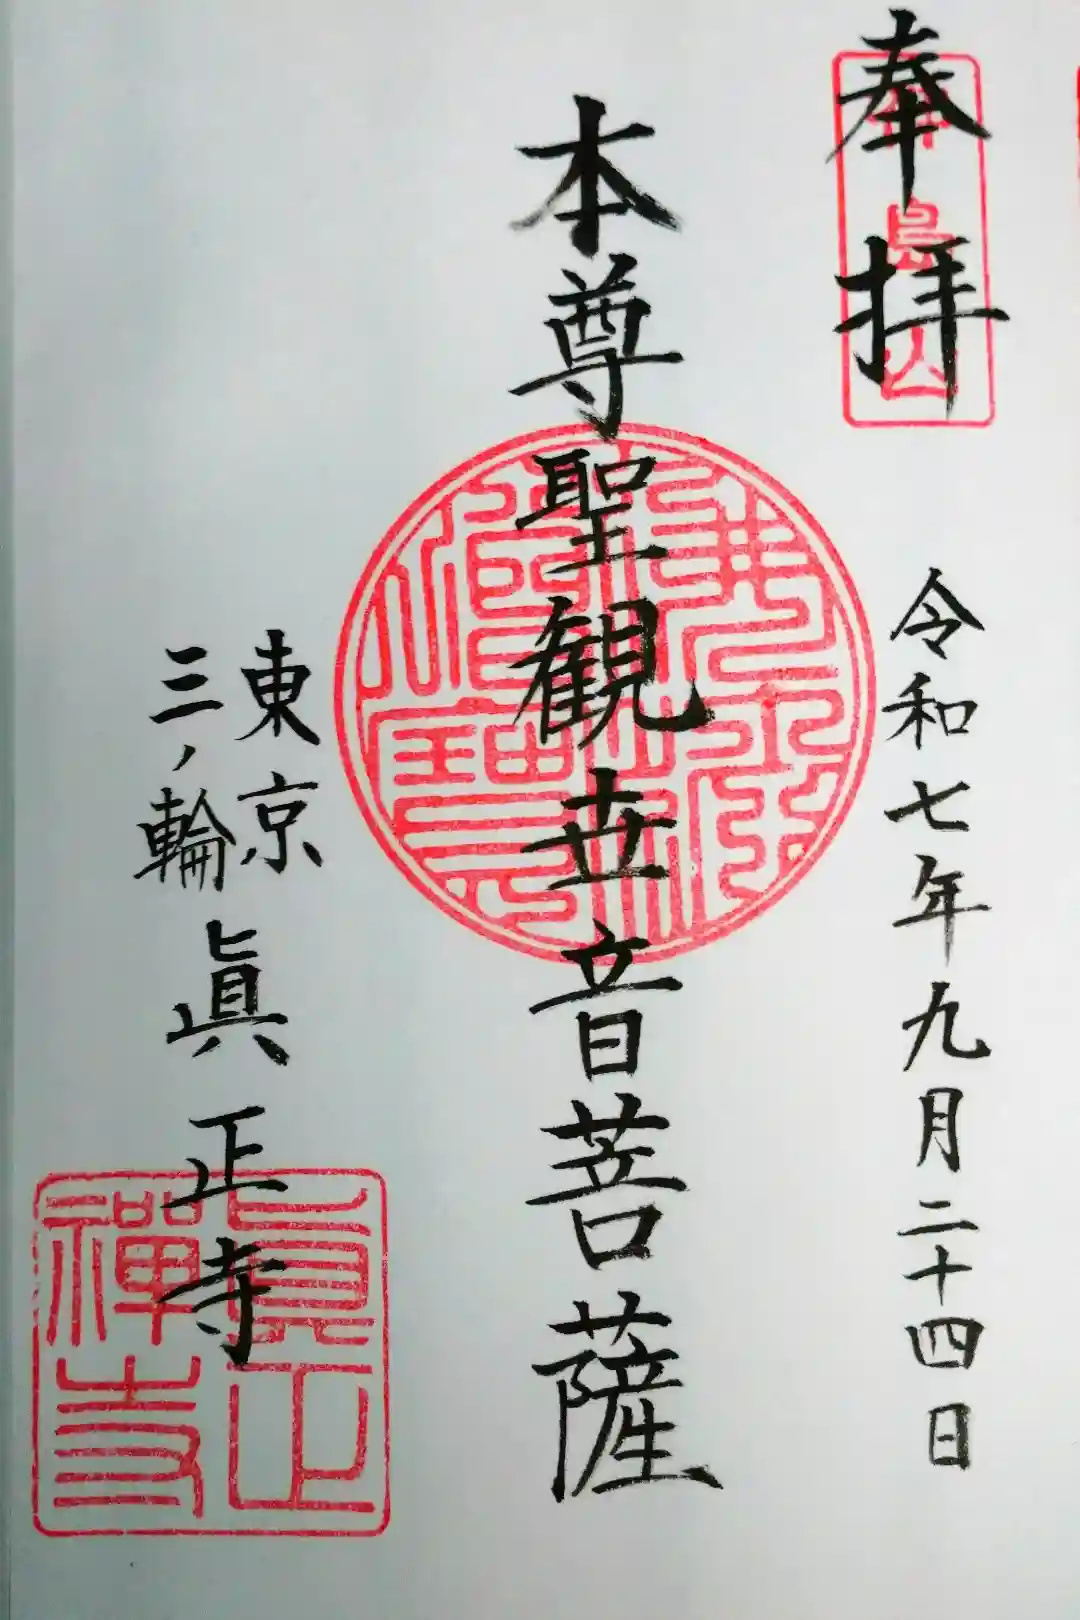 奉拝
令和七年九月二十四日
本尊聖観世音菩薩
東京
三ノ輪
眞正寺
眞正
禅寺